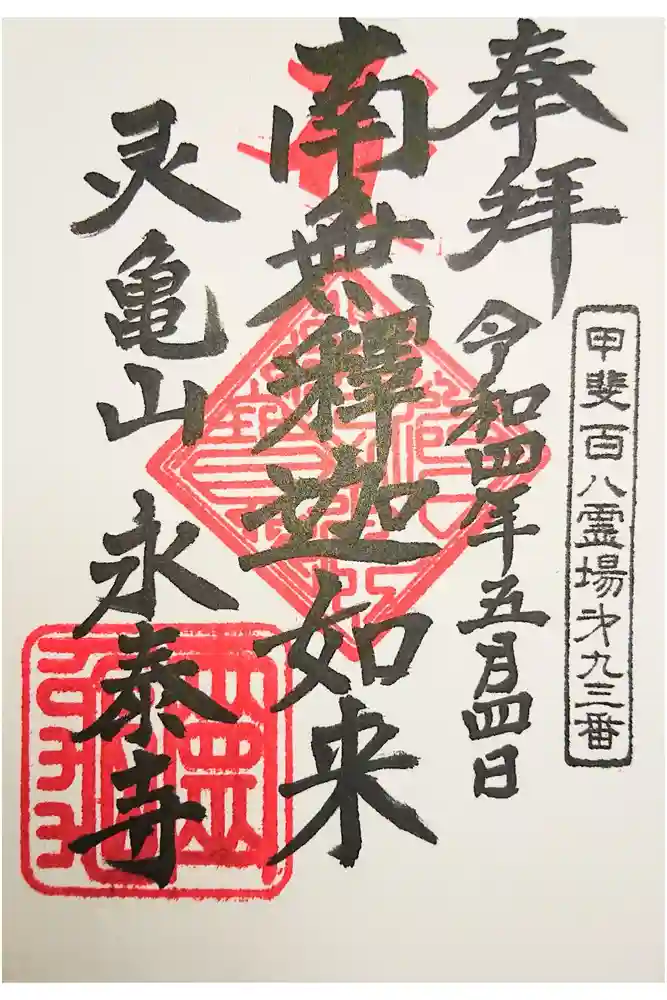 甲斐百八霊場才九三番
奉拝
令和四年五月四日
南無釋迦如来
灵亀山 永泰寺